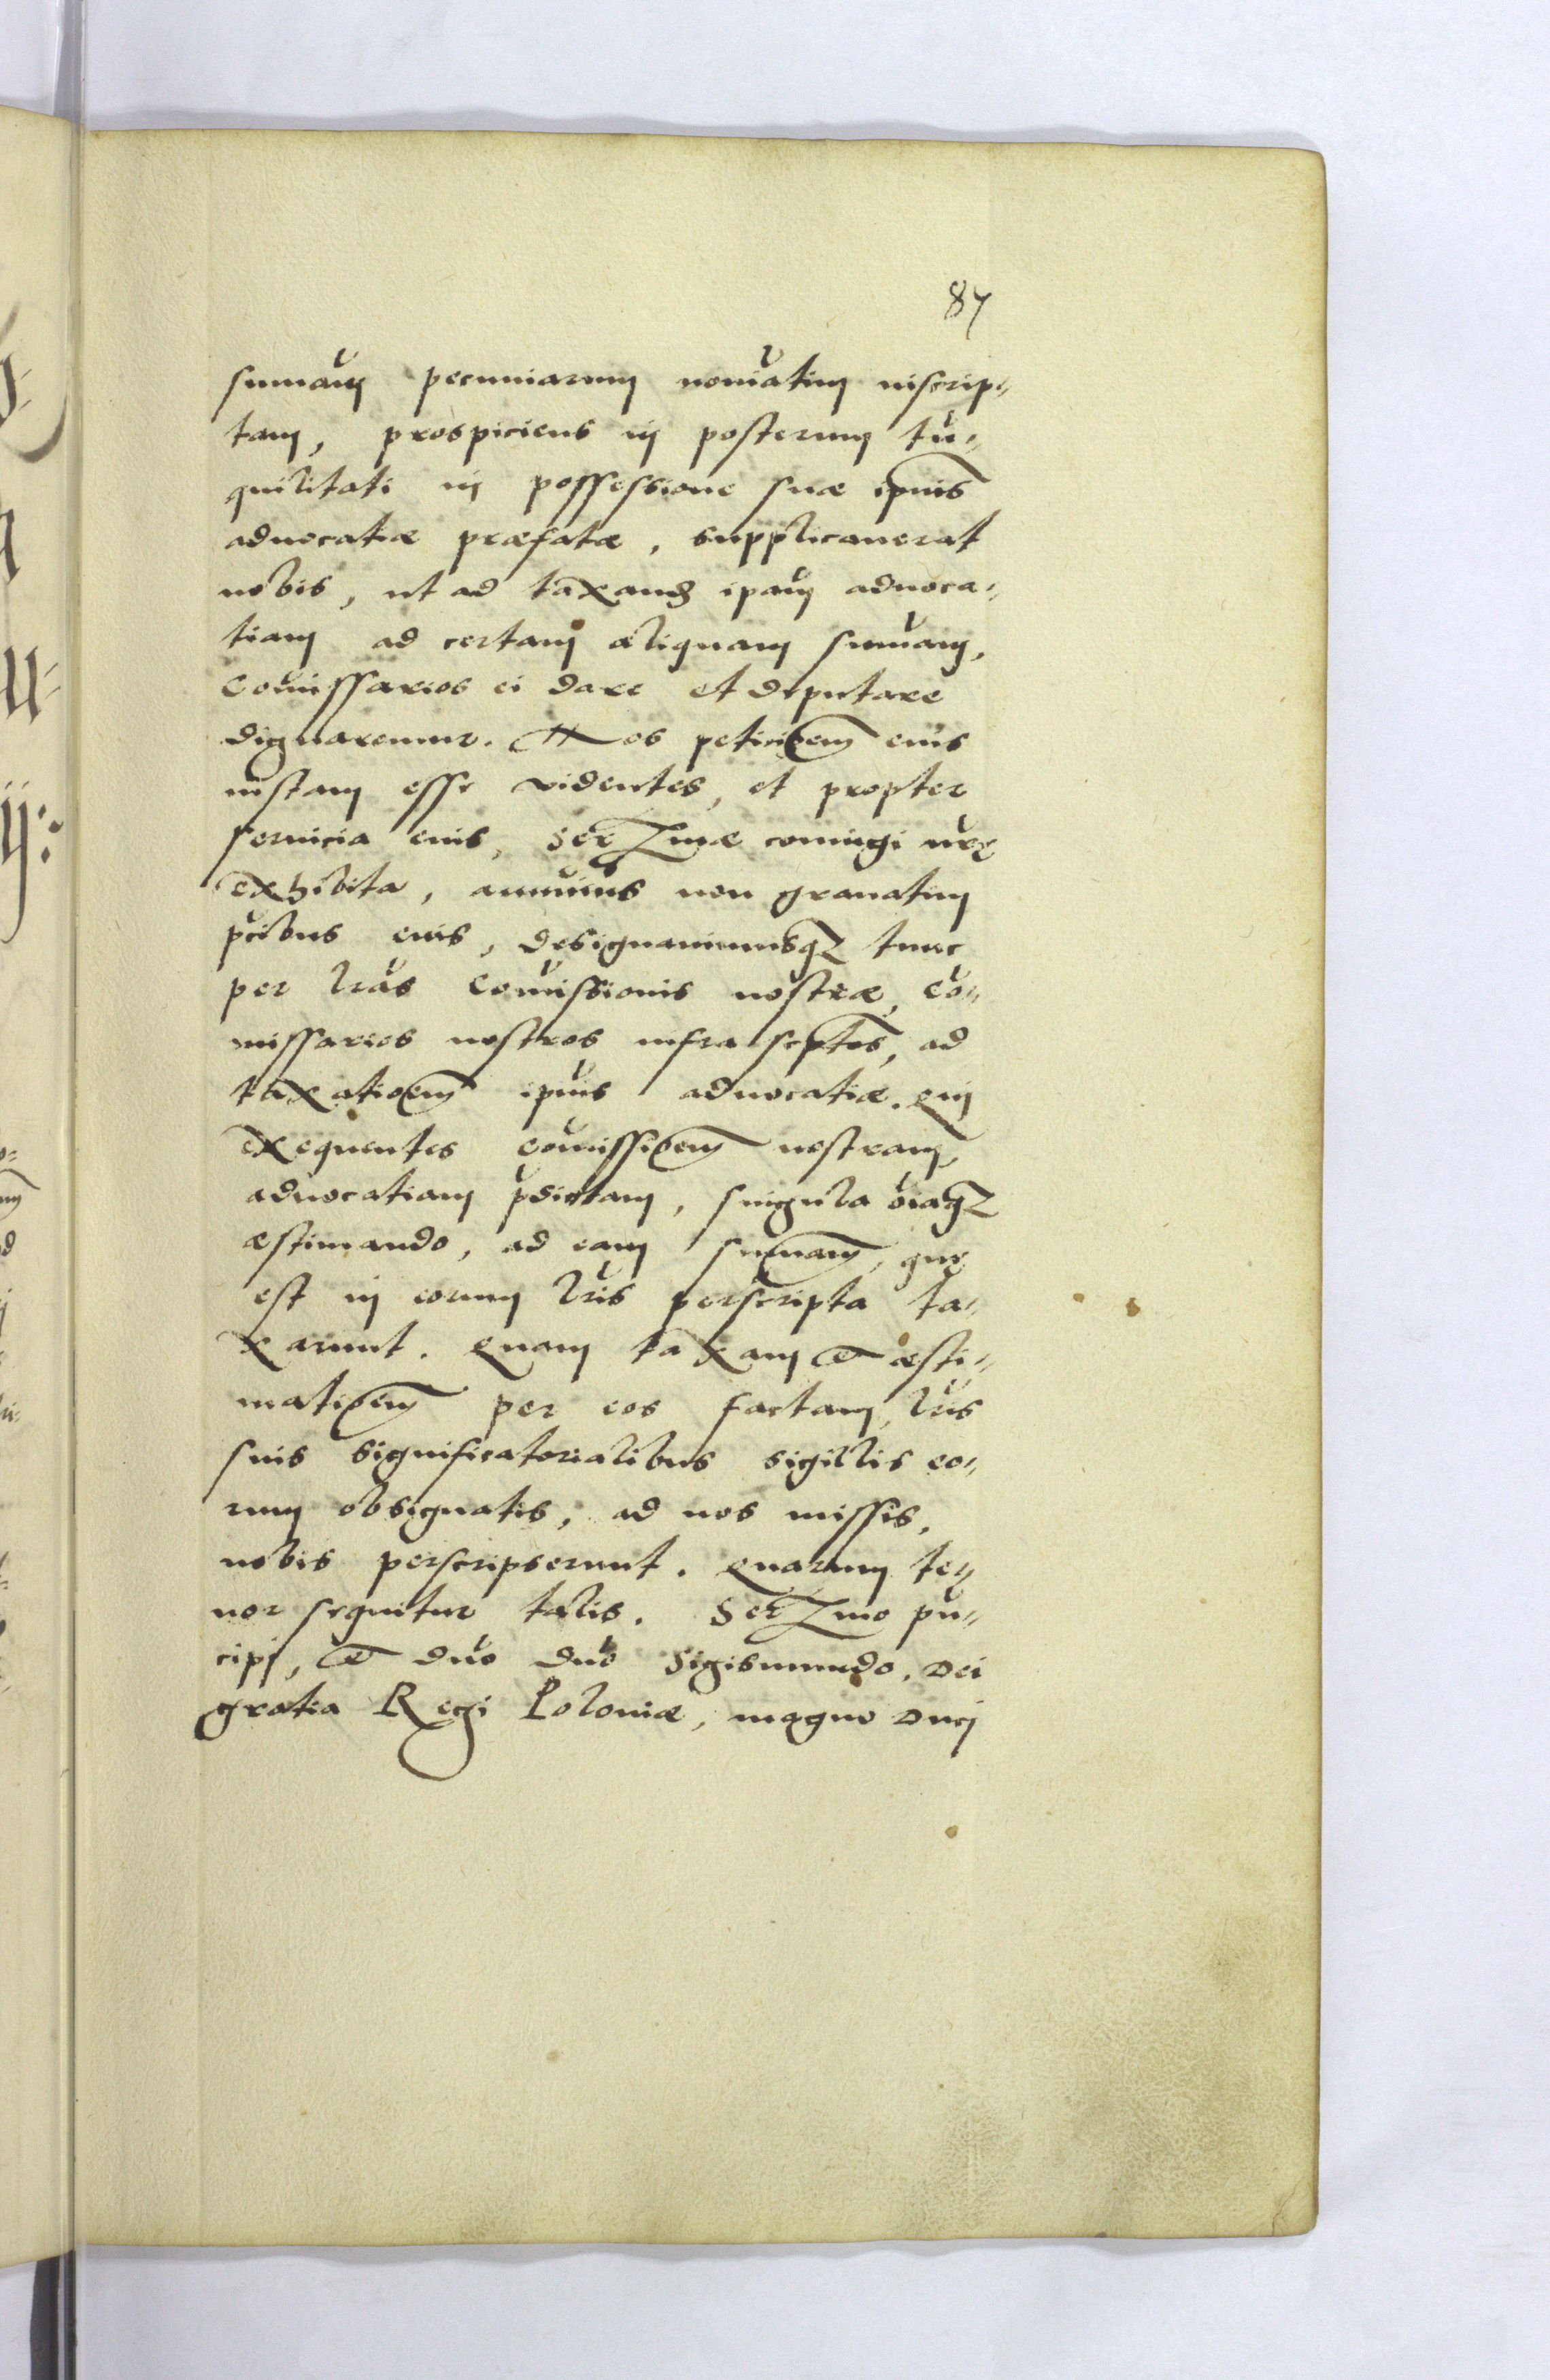 87
summam pecuniarum nominatim inscrip-
tam, prospiciens in posterum tn-
quilitati in possessione suæ ipius
aduocatiæ præfatæ, supplicauerat
nobis, ut ad taxand ipam aduoca-
tiam ad certam aliquam summam,
Comissarios ei dare et deputare
dignaremur. Nos peticioem eius
iustam esse videntes, et propter
seruicia eius, Serme coniugi nrę
exhibita, annuimus non grauatim
pcibus eius, designauimusqz tunc
per lras Comissionis nostræ, Co-
missarios nostros infra scptos, ad
taxatioem ipius aduocatiæ. Qui
exequentes comissioem nostram,
aduocatiam pdictam, singula oiaqz
æstimando, ad eam summam, quę
est in eorum lris perscripta ta-
xarunt. Quam taxam et æsti-
matioem per eos factam, lris
suis significatorialibus sigillis eo-
rum obsignatis, ad nos missis,
nobis perscripserunt. Quarum te-
nor sequitur talis. Sermo pn-
cipi, et dno dno Sigismundo, Dei
gratia Regi Poloniæ, magno Duci